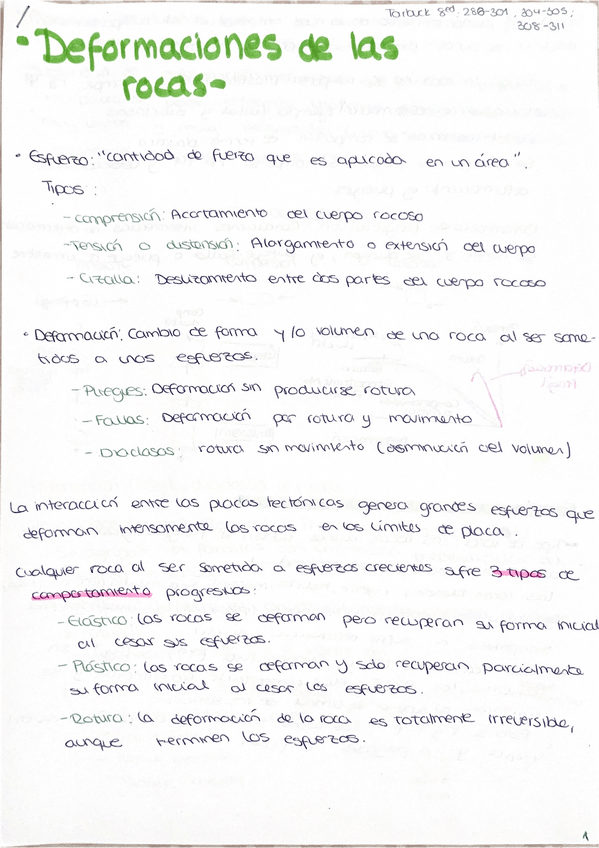 Tarbuck 8ed, 288-301, 304-305,
308-311
• Deformaciones de las
rocas-
• Esfuerzo: "cantidad de fuerza que es aplicada en un área".
Tipos:
- comprensión: Acortamiento del cuerpo rocoso
- Tensión o distensión: Alargamiento o extensión del cuerpo
- Cizalla: Deslizamiento entre dos partes del cuerpo rocoso
• Deformación: Cambio de forma y/o volumen de una roca al ser some-
tidos a unos esfuerzos.
- Pliegues: Deformación sin producirse rotura
- Fallas: Deformación por rotura y movimiento
- Diaclasas: rotura sin movimiento (disminución del volumen)
La interacción entre las placas tectónicas genera grandes esfuerzos que
deforman intensamente las rocas en los límites de placa.
Cualquier roca al ser sometida a esfuerzos crecientes sufre 3 tipos de
comportamiento progresivos:
- Elástico: las rocas se deforman pero recuperan su forma inicial
al cesar sus esfuerzos.
- Plástico: las rocas se deforman y solo recuperan parcialmente
su forma inicial al cesar los esfuerzos.
- Rotura: la deformación de la roca es totalmente irreversible,
aunque terminen los esfuerzos.
1